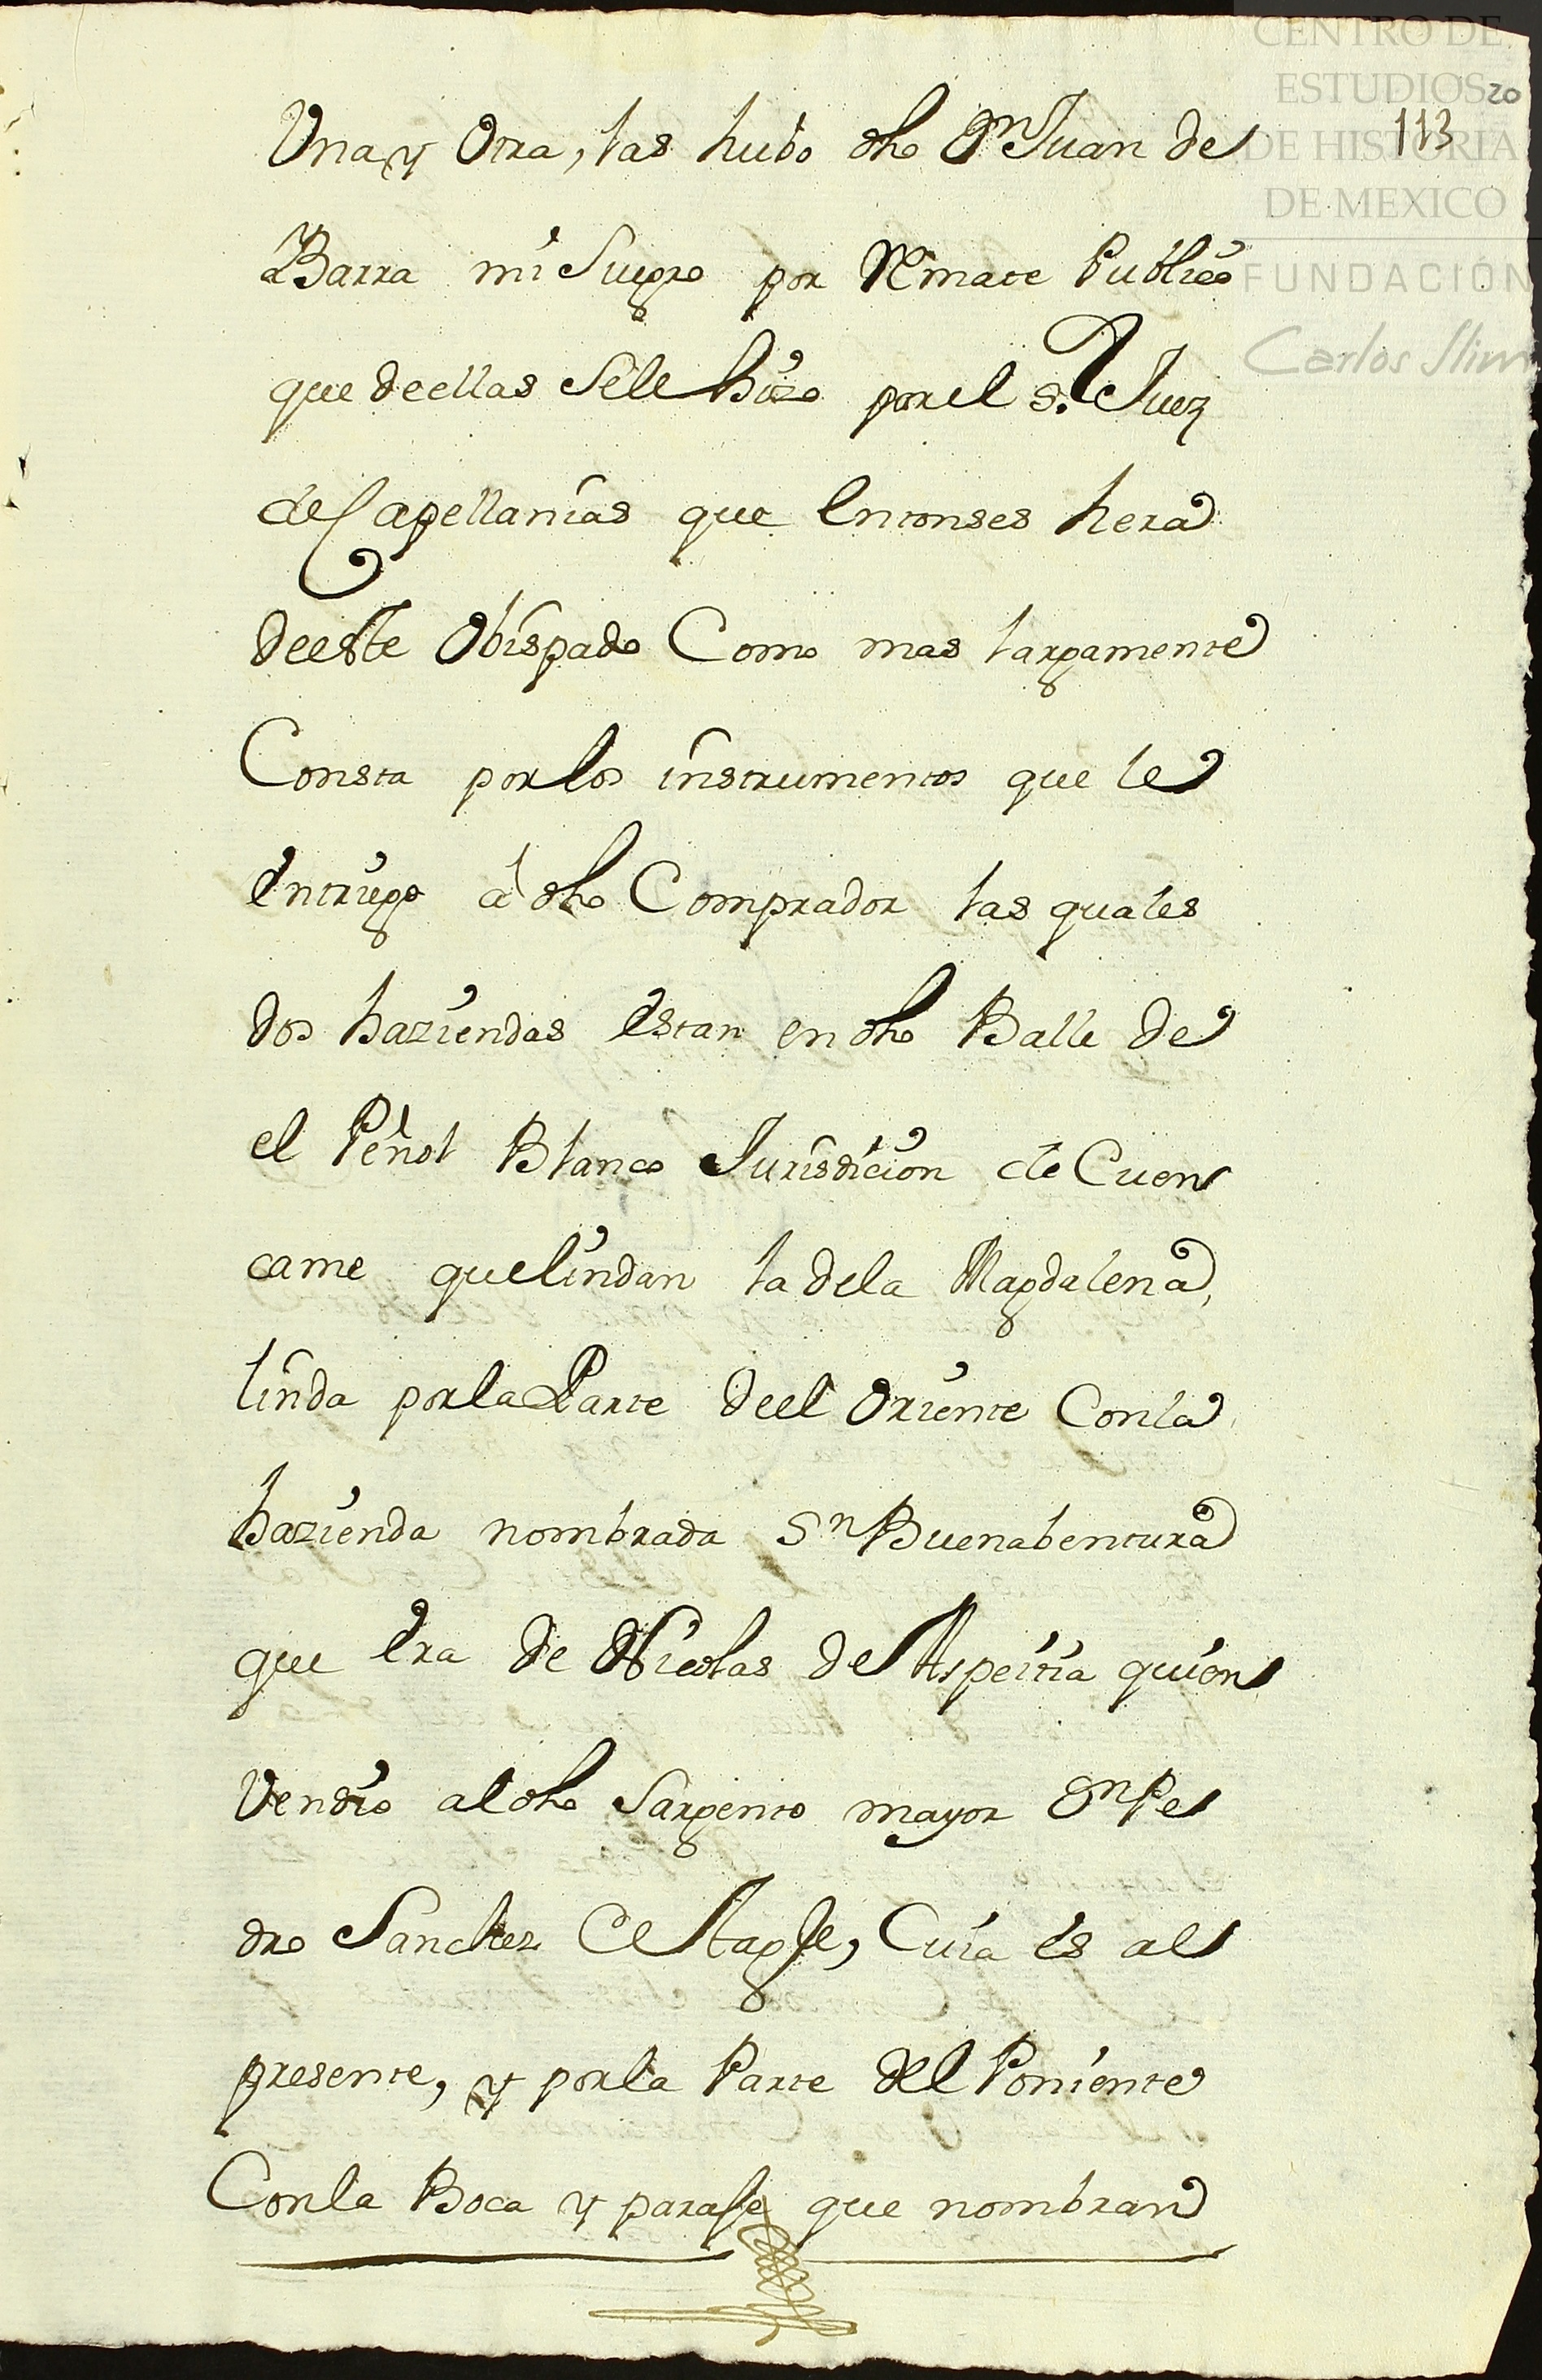 CENTRO DE
ESTUDIOS
DE HISTORIA
DE MEXICO
FUNDACIÓN
Carlos Slim
20
113
Una y Otra, las hubo dho Dn Juan de
Barra mi Suegro por Remate Publico
que deellas sele hizo por el s.r Juez
de Capellanias que Entonses hera
deeste Obispado Como mas largamente
Consta por los instrumentos que le
Entrego a dho Comprador las quales
dos haziendas Estan en dho Balle de
el Peñol Blanco Jurisdicion de Cuen
came que lindan la dela Magdalena,
linda por la Parte deel Oriente Con la
hazienda nombrada Sn Buenabentura
que Era de Nicolas de Aspeitia quien
Vendio al dho Sargento mayor Dn Pe
dro Sanchez de Tagle, Cuia es al
presente, y por la Parte del Poniente
Con la Boca y paraje que nombran